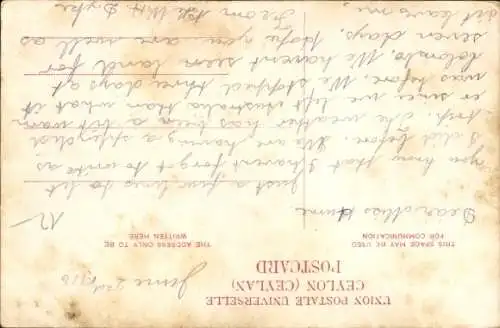 UNION POSTALE UNIVERSELLE
CEYLON (CEYLAN)
POSTCARD
June 2nd 1913
THIS SPACE MAY BE USED
FOR COMMUNICATION
THE ADDRESS ONLY TO BE
WRITTEN HERE
Dear Miss Hume
12
Just a few lines to let
you know that I havent forgot to write as
I did before. We are having a splendid
trip. The weather has been a bit warm
er since we left Australia than what it
was before. We stopped three days at
Colombo. We havent seen land for
seven days. Hope you are well as
it leaves me.
From